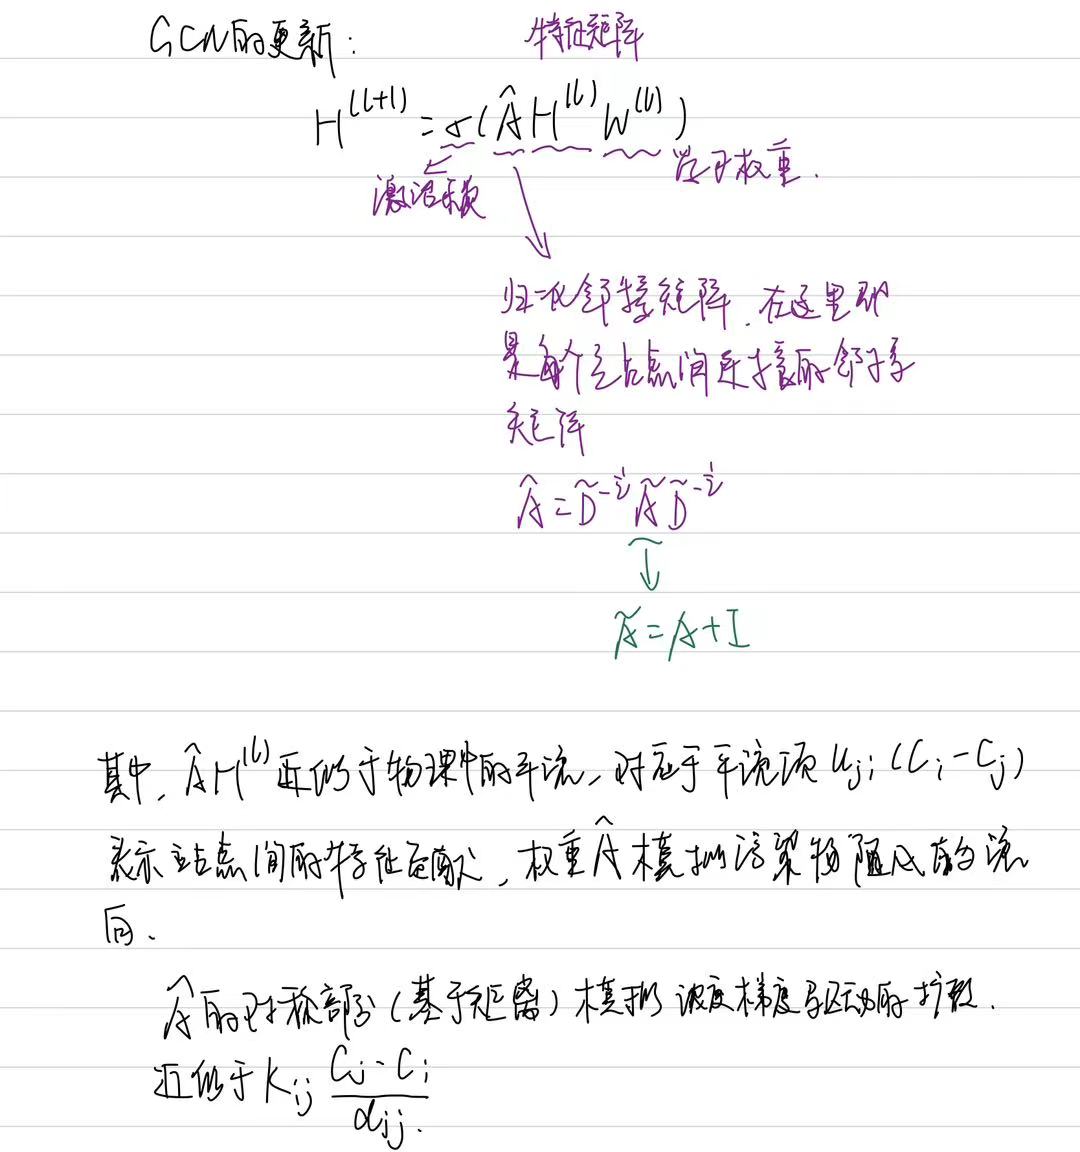 GCN的更新:
特征矩阵
H^{(l+1)} = σ(Â H^{(l)} W^{(l)})
权重.
激活函数
归一化邻接矩阵,在这里即
是每个站点间连接的邻接
矩阵
Â = D̃^{-½} Ã D̃^{-½}
Ã = A + I
其中, Â H^{(l)} 近似于物理中的平流, 对应于平流项 u_{ji} (C_i - C_j)
表示站点间的特征贡献, 权重Â模拟污染物随风的流
向.
Â的对称部分(基于距离)模拟浓度梯度驱动的扩散.
近似于 K_{ij} \frac{C_j - C_i}{d_{ij}}.